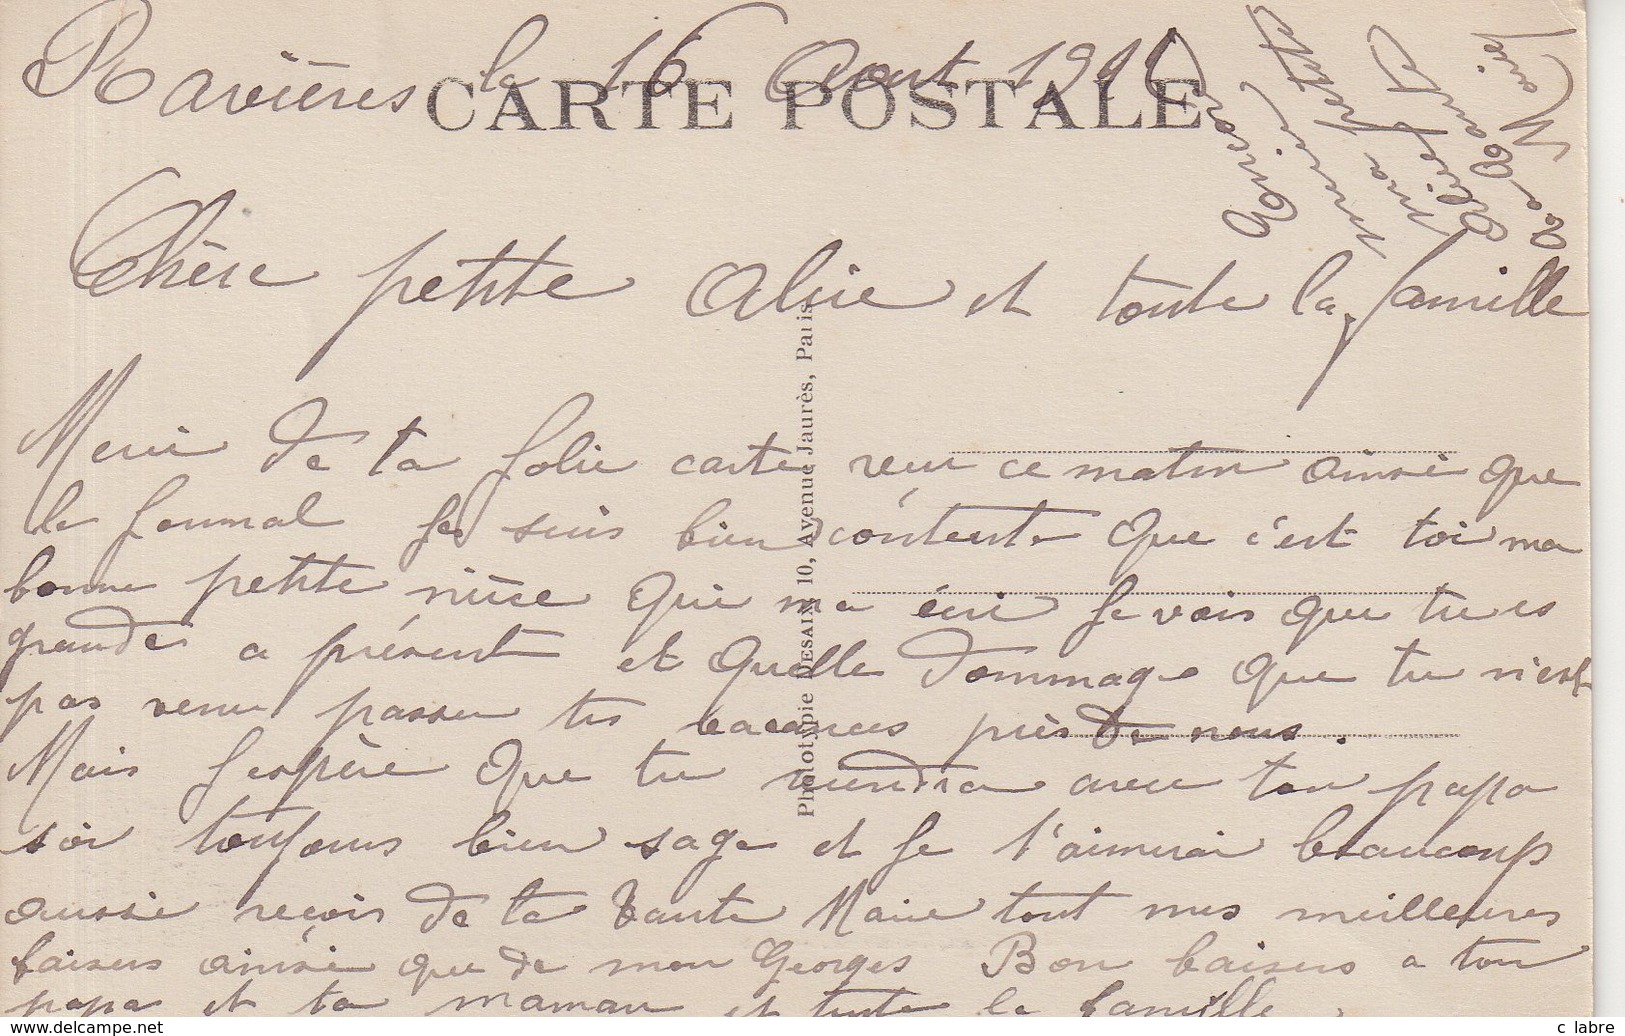 Ravières le 16 Aout 191
CARTE POSTALE
Chère petite Alice et toute la famille
Merci de ta jolie carte reçu ce matin ainsi que
le journal je suis bien contente que c'est toi ma
bonne petite nièce qui ma écri je vois que tu es
grande a présent et quelle dommage que tu n'est
pas venu passer tes vacances près de nous.
Mais j'espère que tu viendra avec ton papa
soi toujours bien sage et je t'aimerai beaucoup
aussi reçois de ta tante Marie tout mes meilleures
baisers ainsi que de mon Georges Bon baisers a ton
papa et ta maman et tute la famille.
Encore
merci
ma petite
Alice
ta tante
Marie
Phototypie DESAIX 10, Avenue Jaurès, Paris
www.delcampe.net
c labre